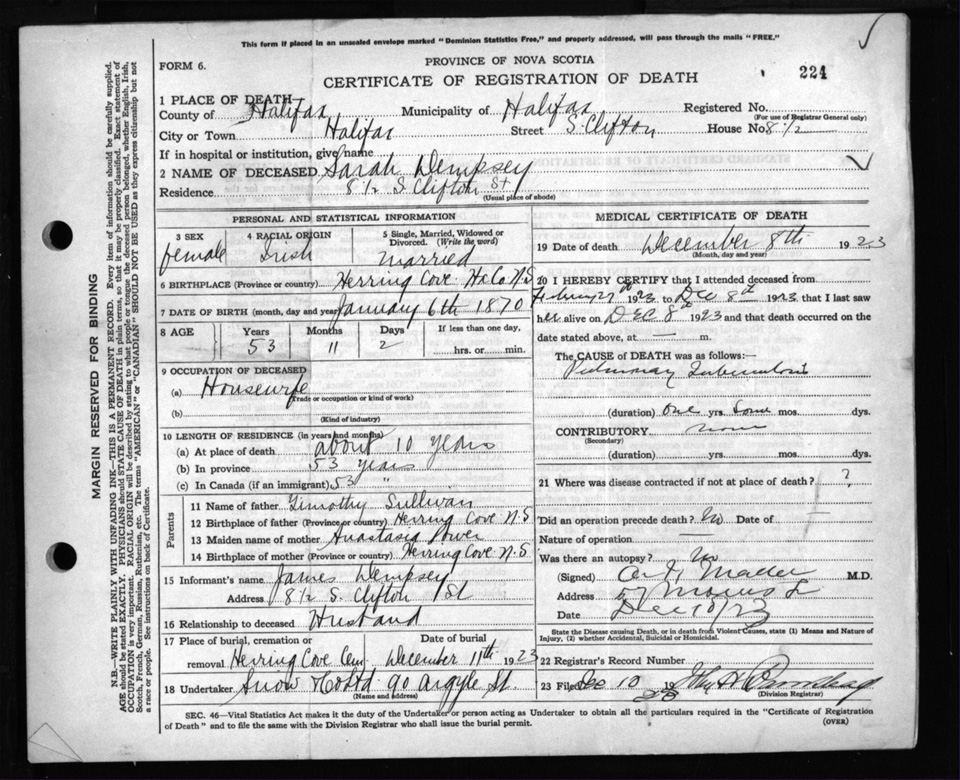 This form if placed in an unsealed envelope marked "Dominion Statistics Free," and properly addressed, will pass through the mails "FREE."
FORM 6.
PROVINCE OF NOVA SCOTIA
CERTIFICATE OF REGISTRATION OF DEATH
224
1 PLACE OF DEATH
County of Halifax Municipality of Halifax Registered No.
(For use of Registrar General only)
City or Town Halifax Street S. Clifton House No 8 1/2
If in hospital or institution, give name
2 NAME OF DECEASED Sarah Dempsey
Residence 8 1/2 S Clifton St
(Usual place of abode)
PERSONAL AND STATISTICAL INFORMATION
3 SEX 4 RACIAL ORIGIN 5 Single, Married, Widowed or Divorced. (Write the word)
female Irish Married
6 BIRTHPLACE (Province or country) Herring Cove Hx Co N.S
7 DATE OF BIRTH (month, day and year) January 6th 1870
8 AGE Years Months Days If less than one day,
53 11 2 hrs. or min.
9 OCCUPATION OF DECEASED
(a) Housewife
(Trade or occupation or kind of work)
(b)
(Kind of industry)
10 LENGTH OF RESIDENCE (in years and months)
(a) At place of death about 10 years
(b) In province 53 years
(c) In Canada (if an immigrant) 53 "
Parents
11 Name of father Timothy Sullivan
12 Birthplace of father (Province or country) Herring Cove N.S
13 Maiden name of mother Anastasia Power
14 Birthplace of mother (Province or country) Herring Cove N.S
15 Informant's name James Dempsey
Address 8 1/2 S. Clifton St
16 Relationship to deceased Husband
17 Place of burial, cremation or Date of burial
removal Herring Cove Cem. December 11th 1923
18 Undertaker Snow & Co Ltd 90 Argyle St.
(Name and address)
MEDICAL CERTIFICATE OF DEATH
19 Date of death December 8th 1923
(Month, day and year)
20 I HEREBY CERTIFY that I attended deceased from
1923 to Dec 8th 1923 that I last saw
her alive on DEC 8th 1923 and that death occurred on the
date stated above, at m.
The CAUSE of DEATH was as follows:—
Pulmonary Tuberculosis
(duration) one yrs. some mos. dys.
CONTRIBUTORY none
(Secondary)
(duration) yrs. mos. dys.
21 Where was disease contracted if not at place of death? ?
Did an operation precede death? No Date of —
Nature of operation —
Was there an autopsy? No
(Signed) M.D.
Address 57 Morris St
Date Dec 10/23
State the Disease causing Death, or in death from Violent Causes, state (1) Means and Nature of
Injury, (2) whether Accidental, Suicidal or Homicidal.
22 Registrar's Record Number
23 Filed Dec 10 1923
(Division Registrar)
SEC. 46—Vital Statistics Act makes it the duty of the Undertaker or person acting as Undertaker to obtain all the particulars required in the "Certificate of Registration
of Death" and to file the same with the Division Registrar who shall issue the burial permit.
(OVER)
MARGIN RESERVED FOR BINDING
N.B.—WRITE PLAINLY WITH UNFADING INK—THIS IS A PERMANENT RECORD. Every item of information should be carefully supplied.
AGE should be stated EXACTLY. PHYSICIANS should STATE CAUSE OF DEATH in plain terms, so that it may be properly classified. Exact statement of
OCCUPATION is very important. RACIAL ORIGIN will be described by stating to what people or tongue the deceased person belonged, whether English, Irish,
Scotch, French, German, Russian, Ruthenian, etc. The terms "AMERICAN" or "CANADIAN" SHOULD NOT BE USED as they express citizenship but not
a race or people. See instructions on back of Certificate.